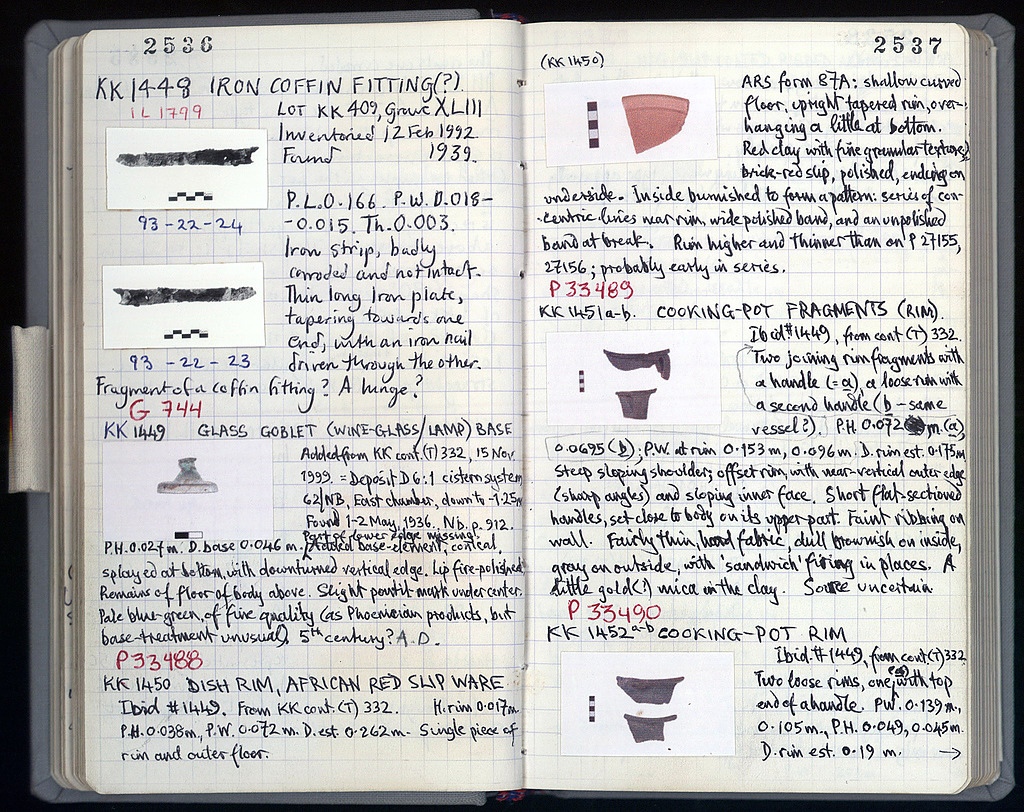 2536
KK 1448 IRON COFFIN FITTING(?).
IL 1799
LOT KK 409, Grave XLIII
Inventoried 12 Feb 1992
Found 1939.
P.L. 0.166. P.W. 0.018–
-0.015. Th. 0.003.
93-22-24
Iron strip, badly
corroded and not intact.
Thin long Iron plate,
tapering towards one
end, with an iron nail
driven through the other.
93-22-23
Fragment of a coffin fitting? A hinge?
G 744
KK 1449 GLASS GOBLET (WINE-GLASS/LAMP) BASE
Added from KK cont.(T) 332, 15 Nov.
1999. = Deposit D 6:1 cistern system
62/NB, East chamber, down to -1.25m
Found 1-2 May, 1936. Nb. p. 912.
Part of lower edge missing.
P.H. 0.027m. D. base 0.046 m. Added base-element, conical,
splayed at bottom, with downturned vertical edge. Lip fire-polished.
Remains of floor of body above. Slight pontil mark under center.
Pale blue-green, of fine quality (as Phoenician products, but
base-treatment unusual). 5th century? A.D.
P33488
KK 1450 DISH RIM, AFRICAN RED SLIP WARE
Ibid #1449. From KK cont. (T) 332. H. rim 0.017m.
P.H. 0.038m, P.W. 0.072 m. D. est. 0.262m. Single piece of
rim and outer floor.
2537
(KK 1450)
ARS form 87A: shallow curved
floor, upright tapered rim, over-
hanging a little at bottom.
Red clay with fine granular texture,
brick-red slip, polished, ending on
underside. Inside burnished to form a pattern: series of con-
-centric lines near rim, wide polished band, and an unpolished
band at break. Rim higher and thinner than on P 27155,
27156; probably early in series.
P 33489
KK 1451a-b. COOKING-POT FRAGMENTS (RIM).
Ibid #1449, from cont (T) 332.
Two joining rim fragments with
a handle (=a), a loose rim with
a second handle (b – same
vessel?). P.H. 0.072 m. (a),
0.0695 (b); P.W. at rim 0.153 m, 0.096 m. D. rim est. 0.175m
Steep sloping shoulder; offset rim, with near-vertical outer edge
(sharp angles) and sloping inner face. Short flat-sectioned
handles, set close to body on its upper part. Faint ribbing on
wall. Fairly thin, hard fabric, dull brownish on inside,
gray on outside, with 'sandwich' firing in places. A
little gold(?) mica in the clay. Source uncertain
P 33490
KK 1452 a-b COOKING-POT RIM
Ibid. #1449, from cont. (T) 332
Two loose rims, one with top
end of a handle. P.W. 0.139 m,
0.105 m., P.H. 0.049, 0.045m.
D. rim est. 0.19 m. →